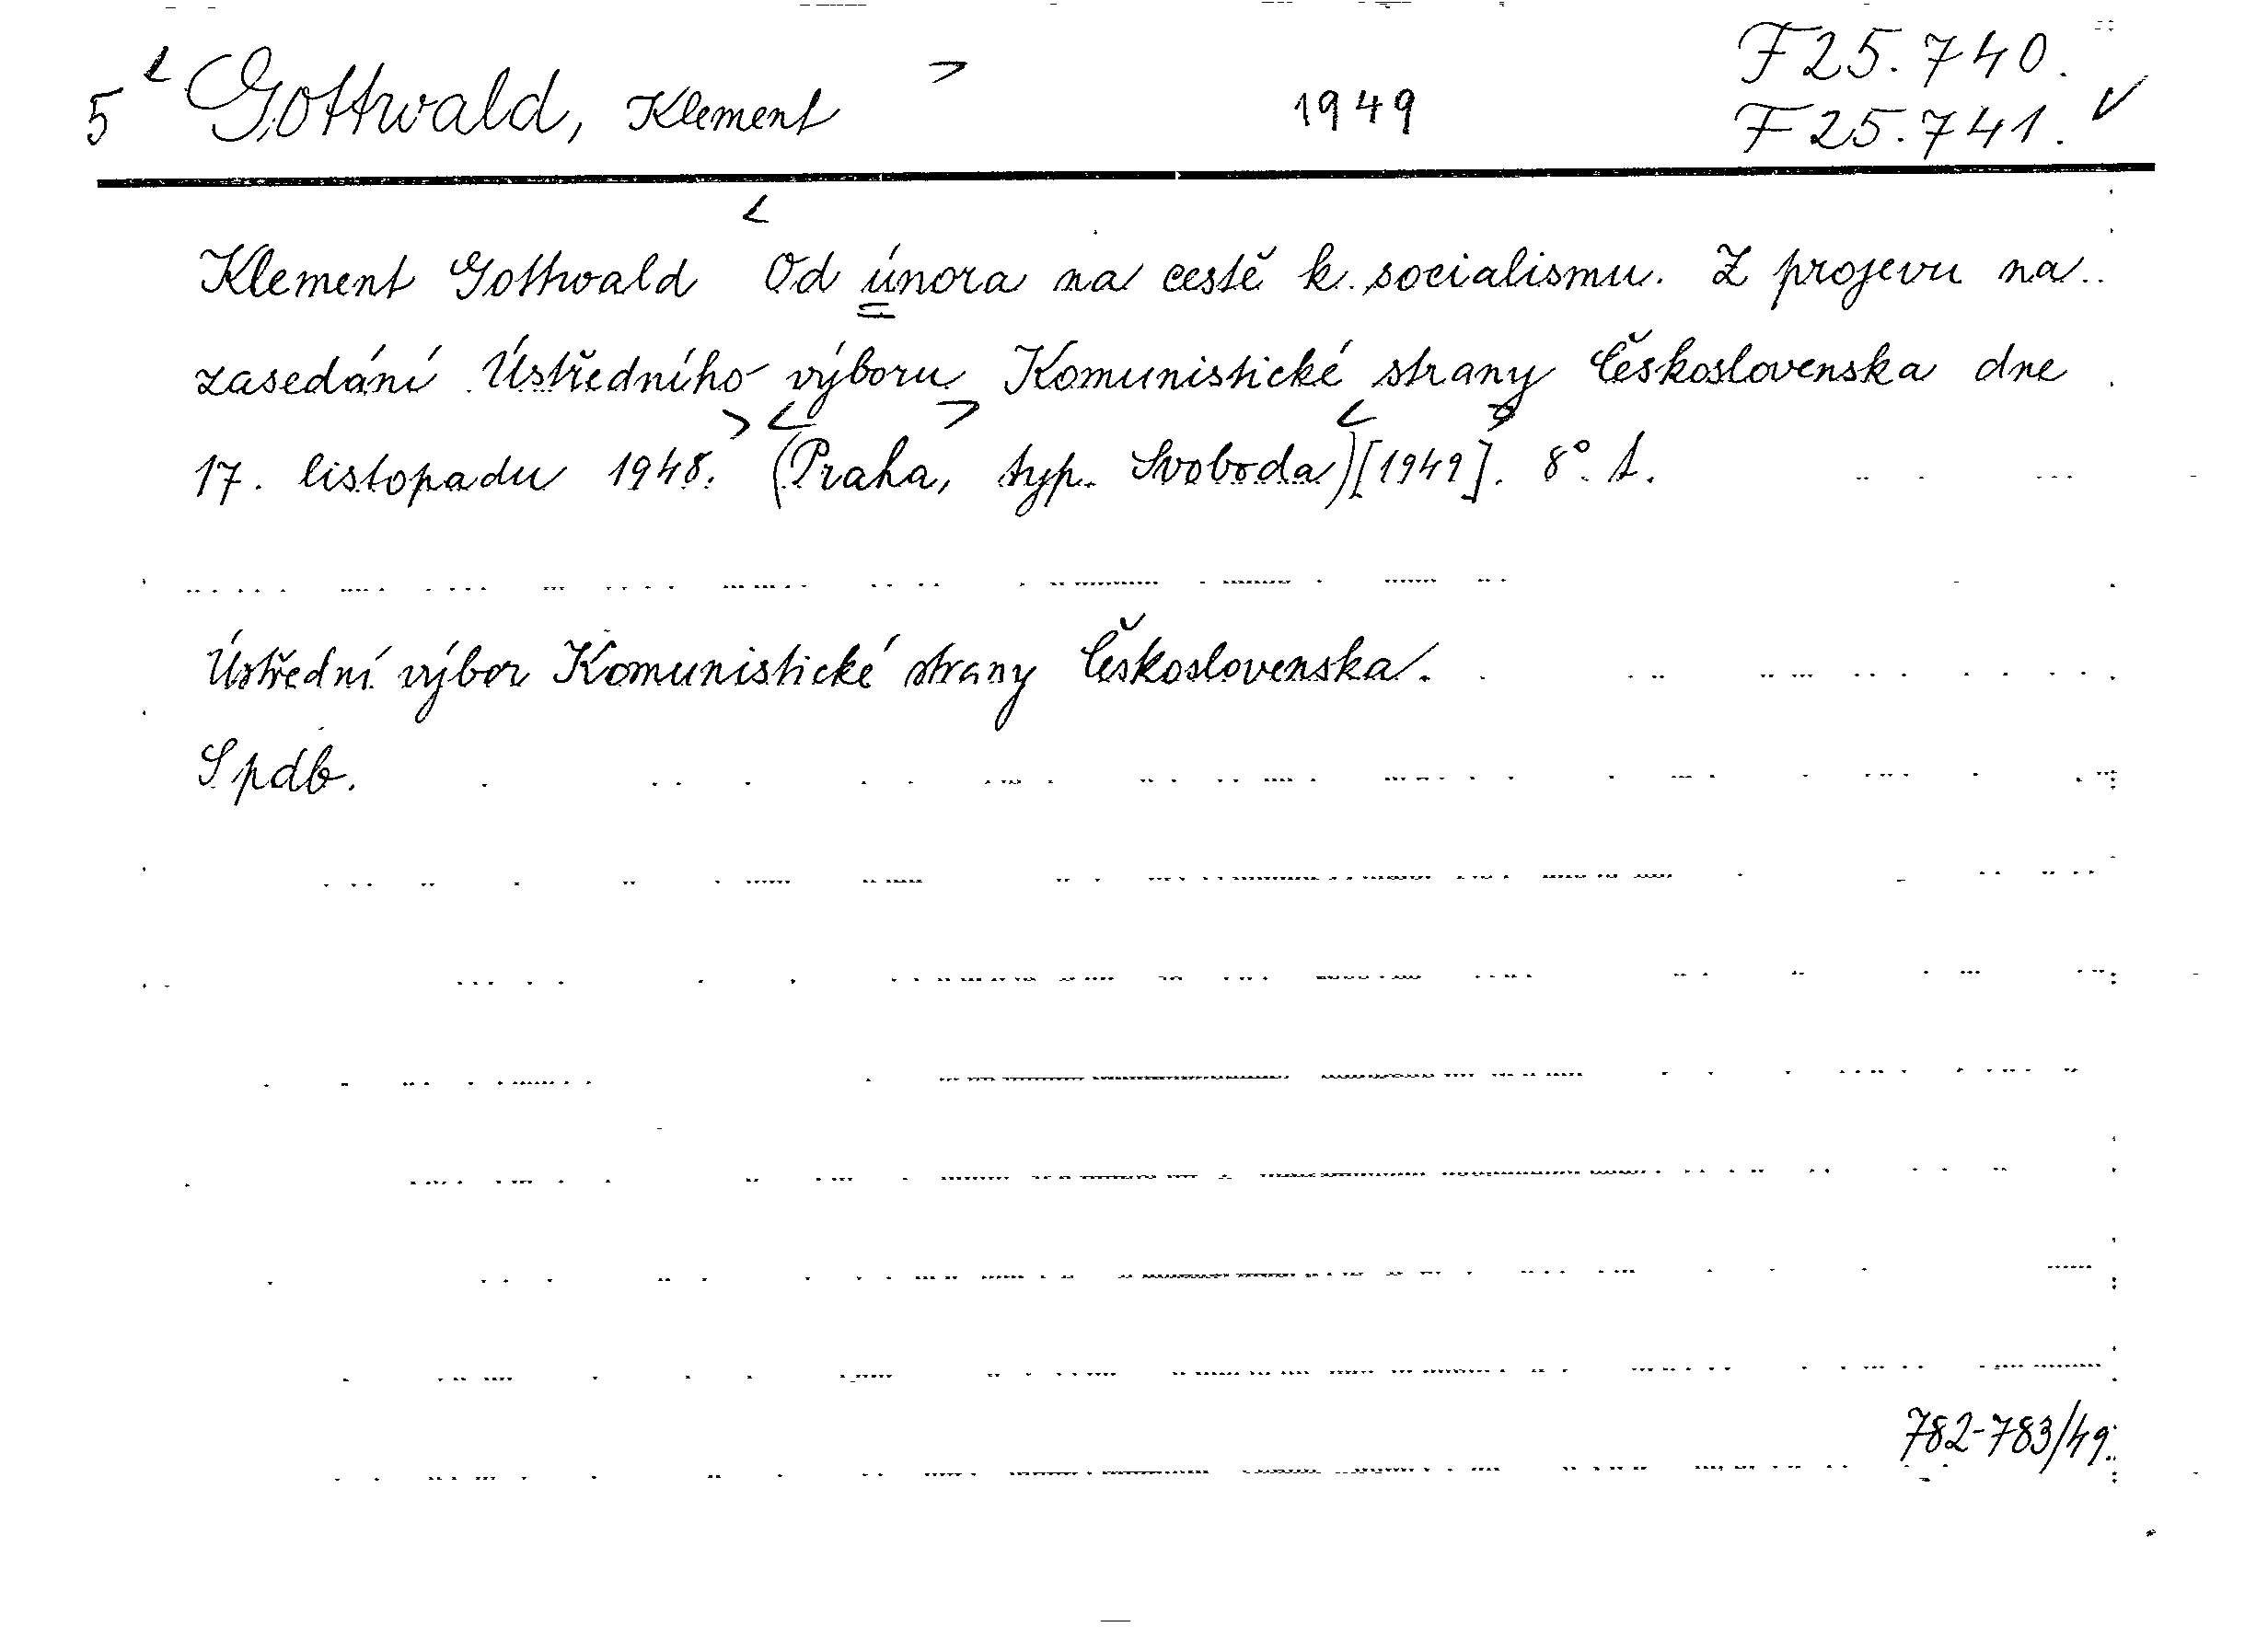 5 < Gottwald, Klement > 1949 F 25.740.
F 25.741. ✓
<
Klement Gottwald Od února na cestě k socialismu. Z projevu na
zasedání Ústředního výboru Komunistické strany Československa dne
17. listopadu 1948. > < (Praha, > typ. Svoboda) < [1949]. 8°. 1.
Ústřední výbor Komunistické strany Československa.
S pdb.
782-783/49.